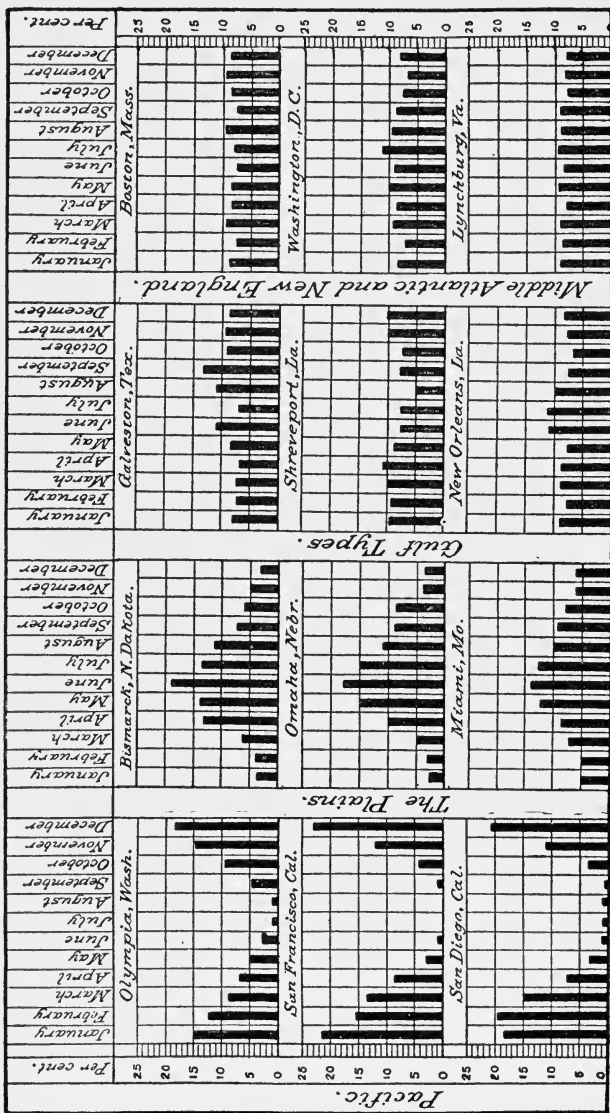 Pacific.
Per cent.
January
February
March
April
May
June
July
August
September
October
November
December
25
20
15
10
5
0
Olympia, Wash.
25
20
15
10
5
0
San Francisco, Cal.
25
20
15
10
5
0
San Diego, Cal.
The Plains.
January
February
March
April
May
June
July
August
September
October
November
December
Bismarck, N. Dakota.
Omaha, Nebr.
Miami, Mo.
Gulf Types.
January
February
March
April
May
June
July
August
September
October
November
December
Galveston, Tex.
Shreveport, La.
New Orleans, La.
Middle Atlantic and New England.
January
February
March
April
May
June
July
August
September
October
November
December
Boston, Mass.
Washington, D.C.
Lynchburg, Va.
Per cent.
25
20
15
10
5
0
25
20
15
10
5
0
25
20
15
10
5
0